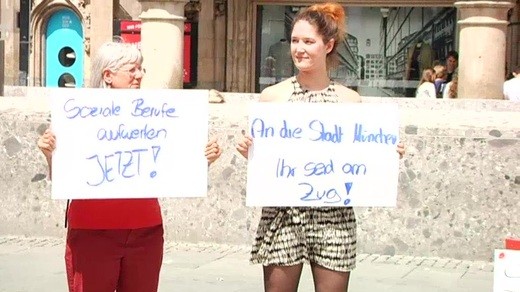 Soziale Berufe
aufwerten
JETZT!
An die Stadt München
Ihr seid am
Zug!